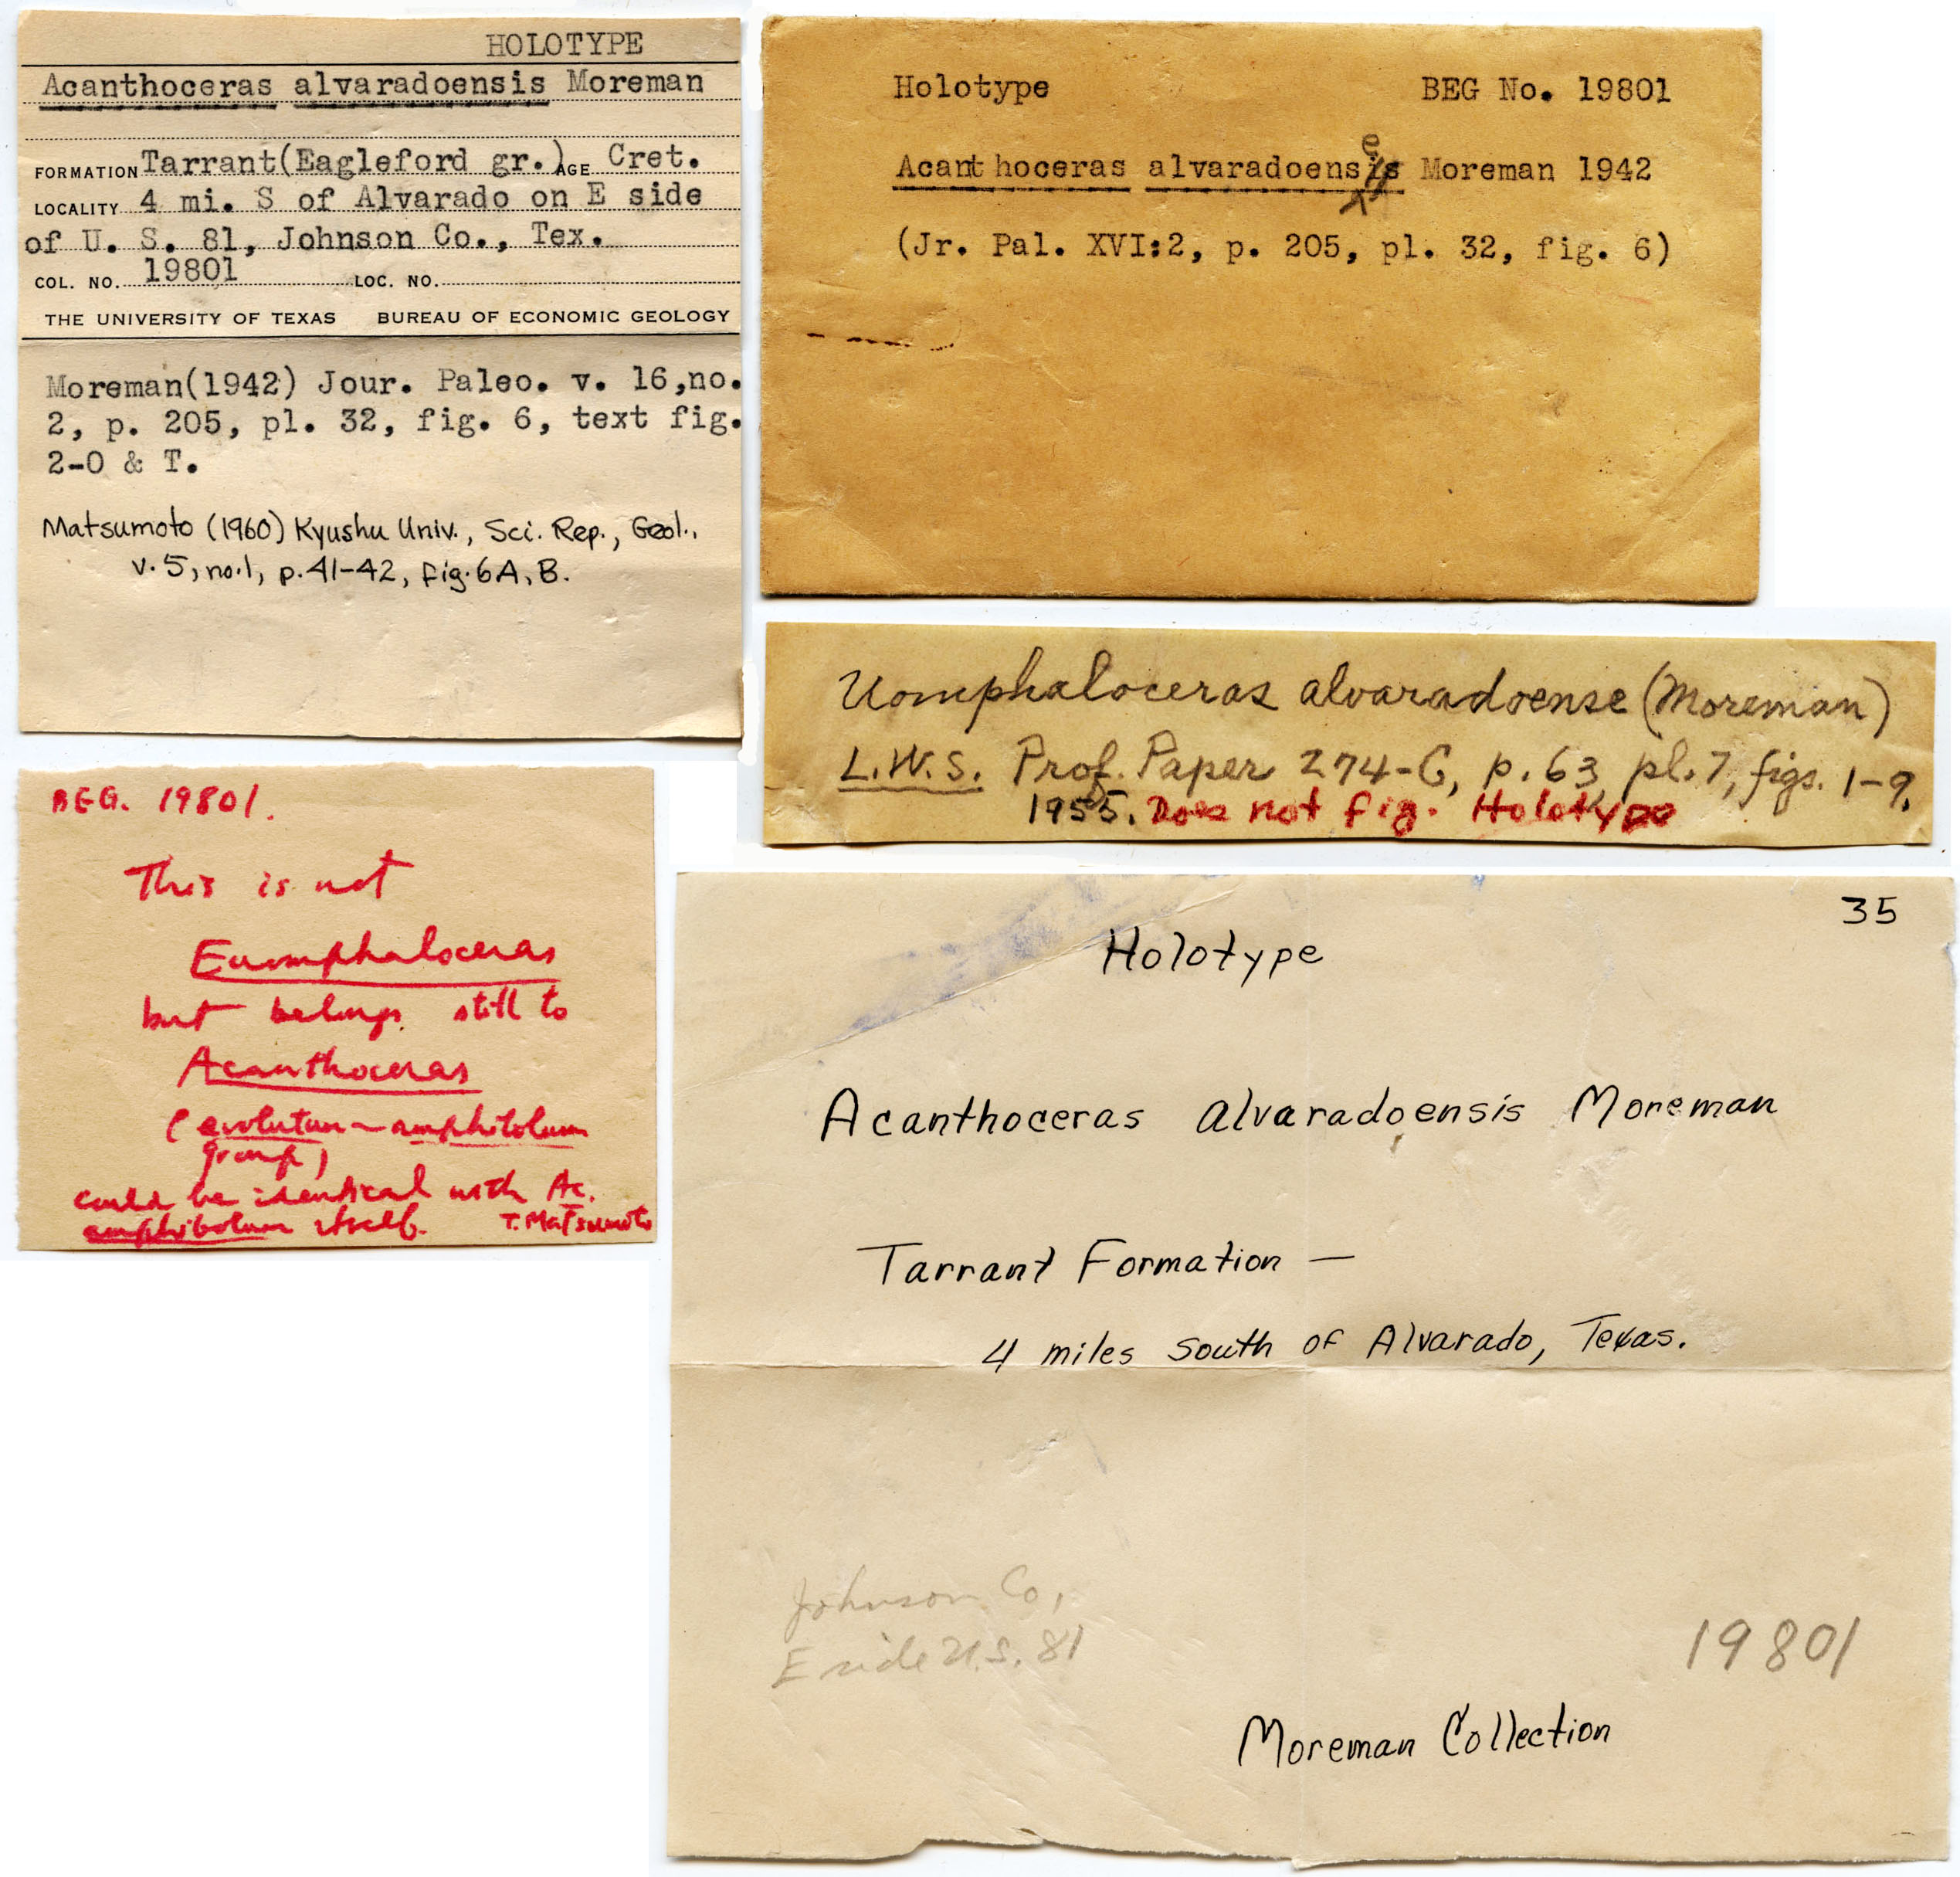 HOLOTYPE
Acanthoceras alvaradoensis Moreman
FORMATION Tarrant(Eagleford gr.) AGE Cret.
LOCALITY 4 mi. S of Alvarado on E side
of U. S. 81, Johnson Co., Tex.
COL. NO. 19801 LOC. NO.
THE UNIVERSITY OF TEXAS BUREAU OF ECONOMIC GEOLOGY
Moreman(1942) Jour. Paleo. v. 16,no.
2, p. 205, pl. 32, fig. 6, text fig.
2-O & T.
Matsumoto (1960) Kyushu Univ., Sci. Rep., Geol.,
v. 5, no. 1, p. 41-42, fig. 6A, B.
Holotype BEG No. 19801
e
Acanthoceras alvaradoensis Moreman 1942
(Jr. Pal. XVI:2, p. 205, pl. 32, fig. 6)
Uomphaloceras alvaradoense (Moreman)
L.W.S. Prof. Paper 274-C, p. 63, pl. 7, figs. 1-9,
1955. Does not fig. Holotype
BEG. 19801.
This is not
Euomphaloceras
but belongs still to
Acanthoceras
(evolutum~amphibolum
group)
could be identical with Ac.
amphibolum itself. T. Matsumoto
35
Holotype
Acanthoceras alvaradoensis Moreman
Tarrant Formation —
4 miles south of Alvarado, Texas.
Johnson Co,
E side U.S. 81
19801
Moreman Collection